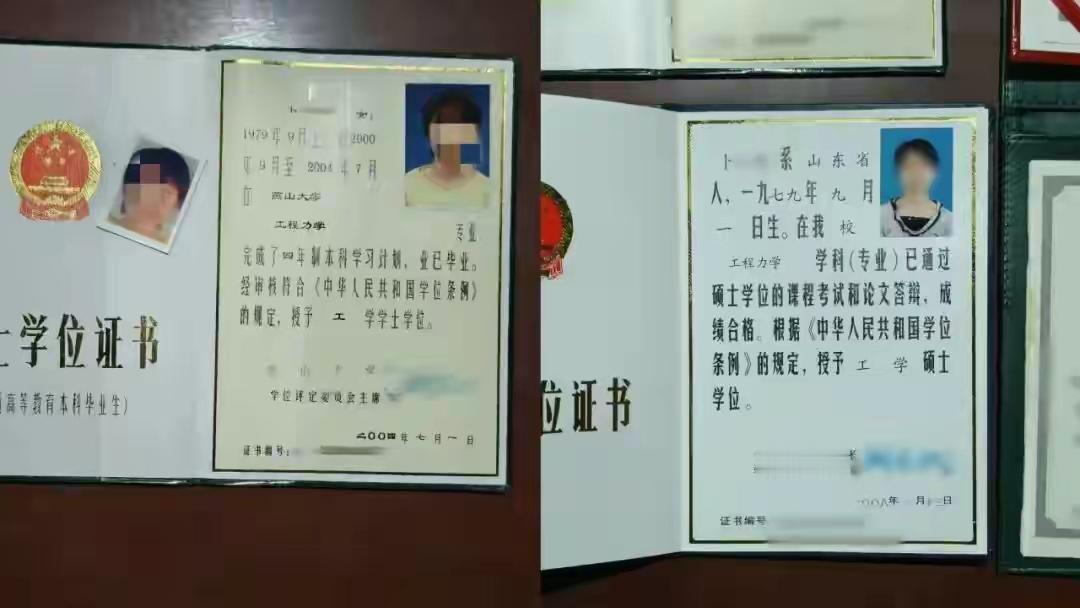 士学位证书
高等教育本科毕业生)
卜 女,
1979年9月 2000
年9月至2004年7月
在 燕山大学
工程力学
专业
完成了四年制本科学习计划,业已毕业。
经审核符合《中华人民共和国学位条例》
的规定,授予 工 学学士学位。
学位评定委员会主席
二00四年七月一日
证书编号:
位证书
卜 系山东省
人,一九七九年九月
一日生。在我校
工程力学 学科(专业)已通过
硕士学位的课程考试和论文答辩,成
绩合格。根据《中华人民共和国学位
条例》的规定,授予 工 学 硕士
学位。
二〇〇八年 月十三日
证书编号